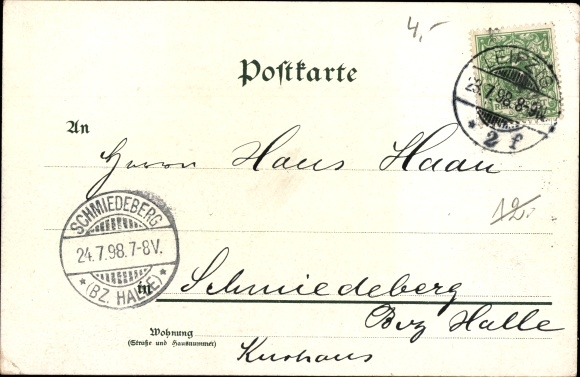 4,-
Postkarte
LEIPZIG
23.7.98.8-9N.
* 2 f *
An
Herrn Hans Haan
12.-
SCHMIEDEBERG
24.7.98.7-8V.
* (BZ. HALLE) *
in Schmiedeberg
Bez Halle
Wohnung
(Straße und Hausnummer)
Kurhaus